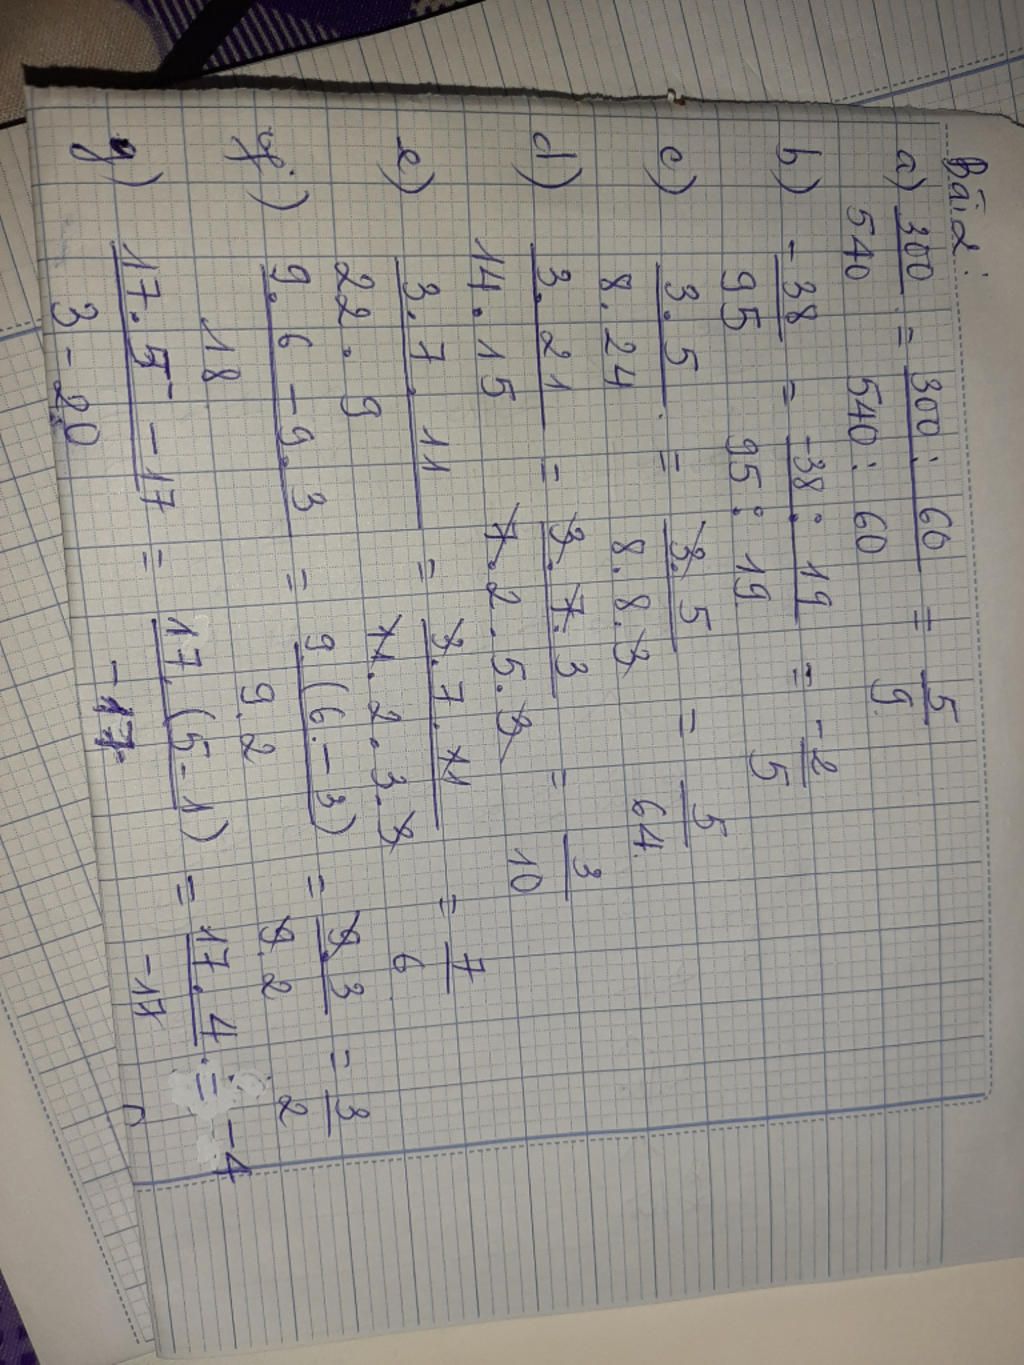 Bài 2:
a) 300/540 = 300:60/540:60 = 5/9
b) -38/95 = -38:19/95:19 = -2/5
c) 3.5/8.24 = 3.5/8.8.3 = 5/64
d) 3.21/14.15 = 3.7.3/7.2.5.3 = 3/10
e) 3.7.11/22.9 = 3.7.11/11.2.3.3 = 7/6
f) 9.6-9.3/18 = 9(6-3)/9.2 = 9.3/9.2 = 3/2
g) 17.5-17/3-20 = 17.(5-1)/-17 = 17.4/-17 = -4